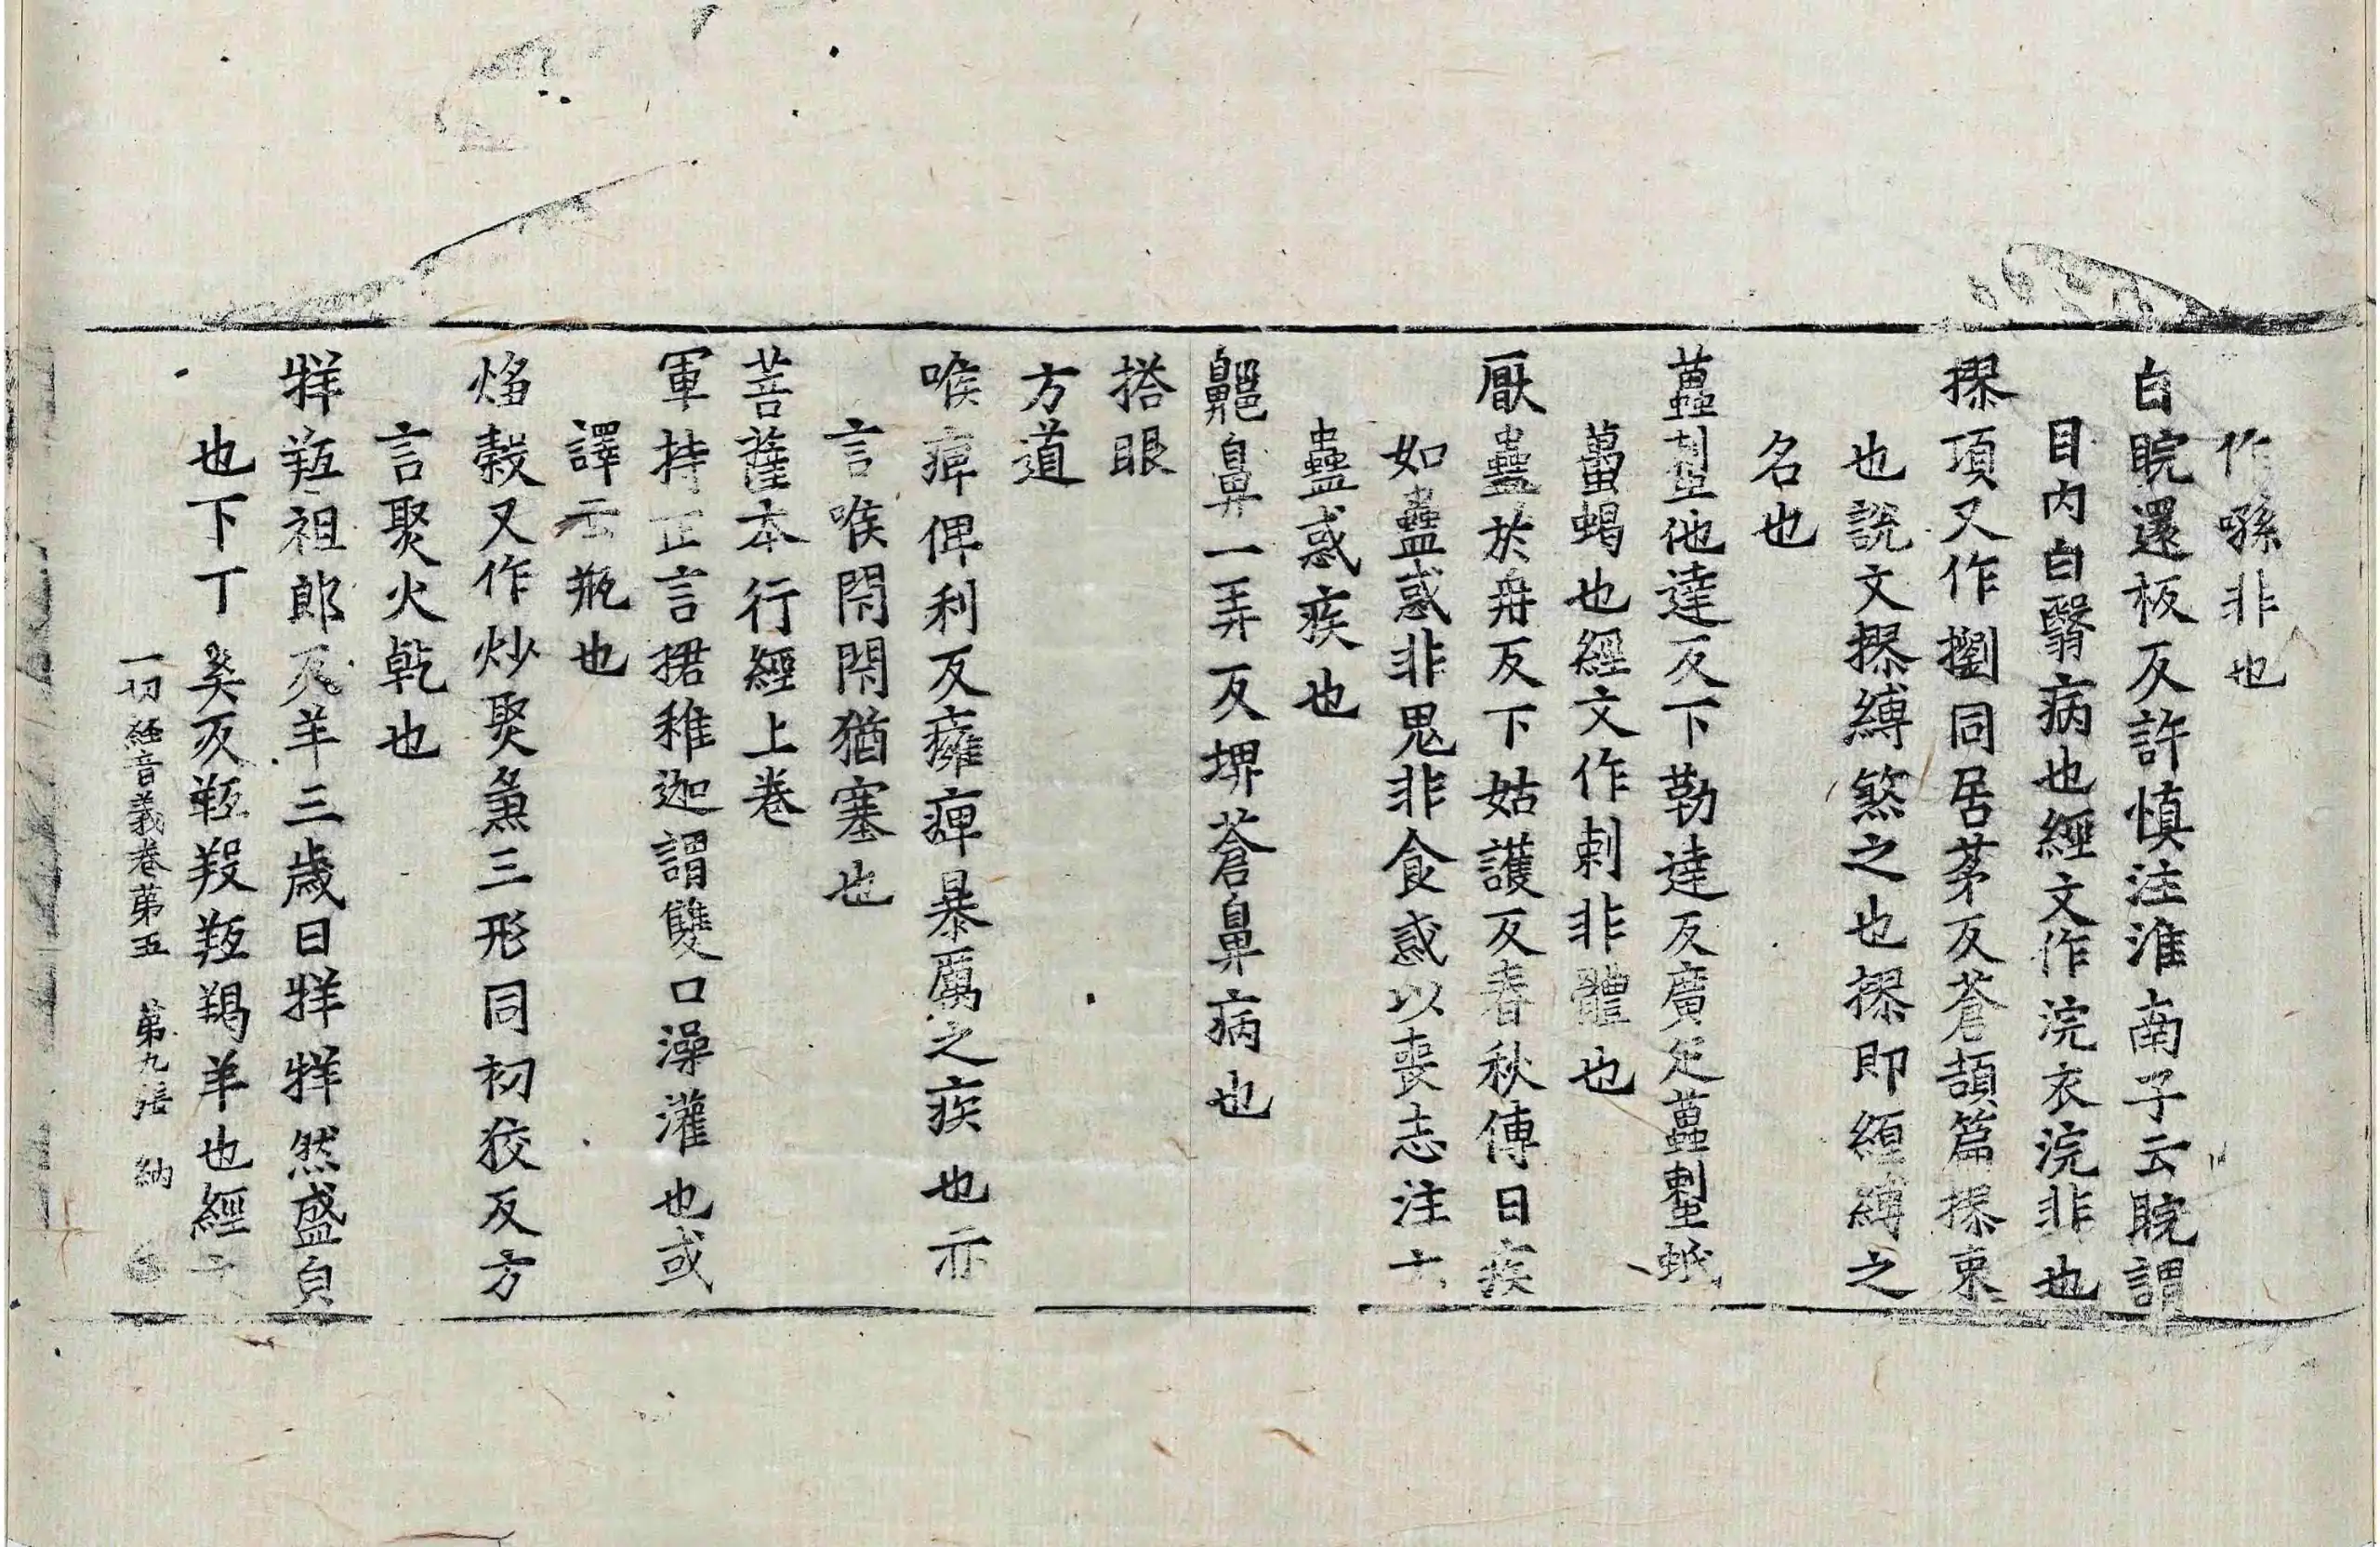 作㖨非也
白睆還板反許慎注淮南子云睆謂
目内白翳病也經文作浣衣浣非也
摎項又作摺同居茅反蒼頡篇摎束
也説文摎縛煞之也摎即經縛之
名也
蠆他達反下勒達反廣疋蠆蚔
蠆蝎也經文作剌非體也
厭蠱於冉反下姑護反春秋傳曰疾
如蠱惑非鬼非食惑以喪志注云
蠱惑疾也
齆鼻一弄反埤蒼鼻病也
搭眼
方道
喉痺俾利反癰痺暴厲之疾也亦
言喉閇閇猶塞也
菩薩本行經上卷
軍持正言捃稚迦謂雙口澡灌也或
譯云瓶也
㷅穀又作炒㷅㷅三形同初狡反方
言㷅火乾也
牂羝祖郎反羊三歲曰牂牂然盛皃
也下丁奚反羝羖羝羯羊也經文
一切經音義卷第五 第九張 納